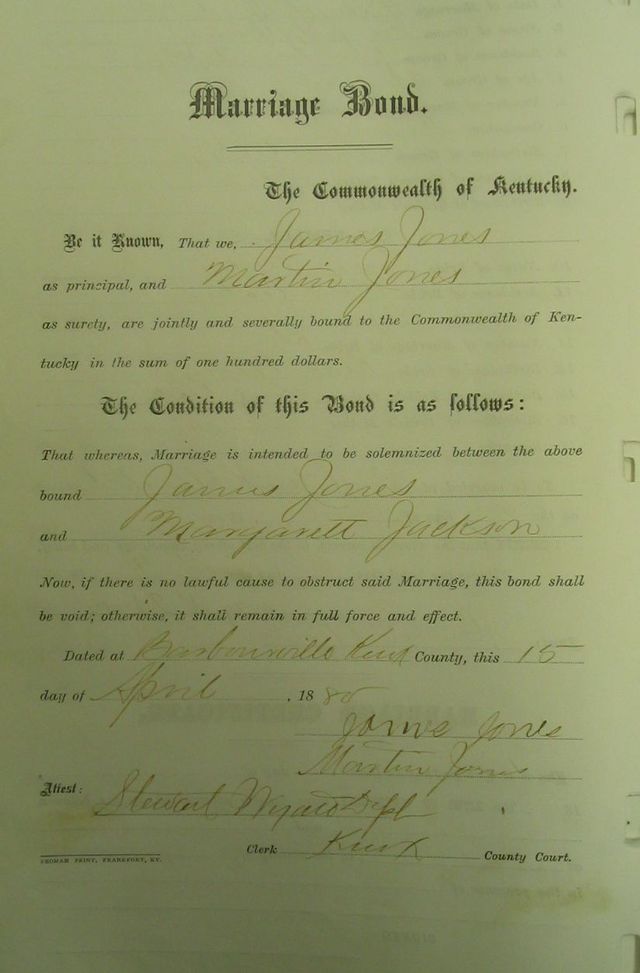 Marriage Bond.
The Commonwealth of Kentucky.
Be it Known, That we, James Jones
as principal, and Martin Jones
as surety, are jointly and severally bound to the Commonwealth of Ken-
tucky in the sum of one hundred dollars.
The Condition of this Bond is as follows:
That whereas, Marriage is intended to be solemnized between the above
bound James Jones
and Margarett Jackson
Now, if there is no lawful cause to obstruct said Marriage, this bond shall
be void; otherwise, it shall remain in full force and effect.
Dated at Barbourville Knox County, this 15
day of April, 18
James Jones
Martin Jones
Attest: Stewart
Clerk Knox County Court.
YEOMAN PRINT, FRANKFORT, KY.